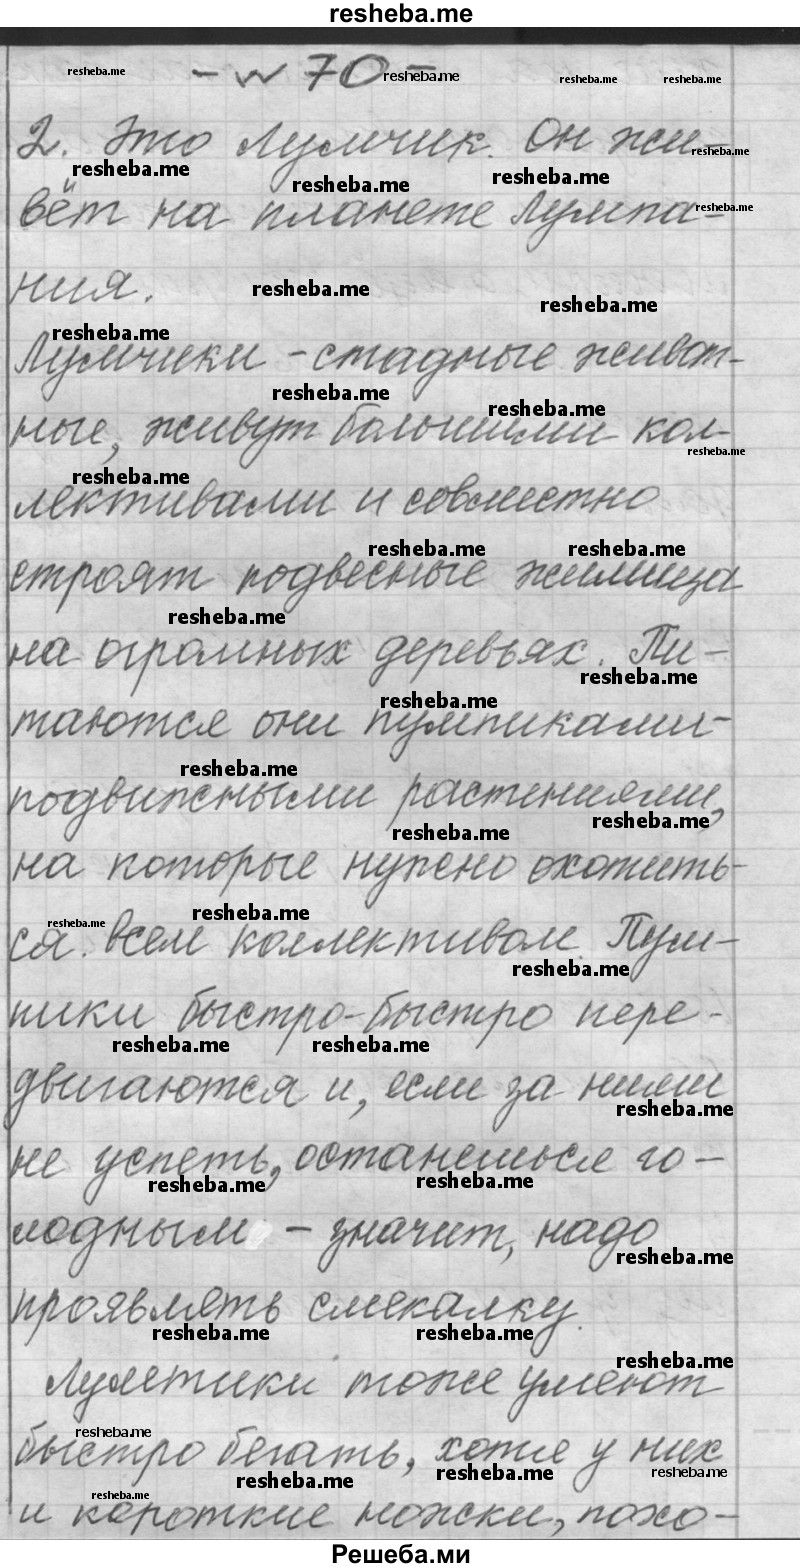 resheba.me
- № 70 -
2. Это Лумчик. Он жи-
вёт на планете Лумпа-
ния.
Лумчики - стадные живот-
ные, живут большими кол-
лективами и совместно
строят подвесные жилища
на огромных деревьях. Пи-
таются они пумпиками-
подвижными растениями,
на которые нужно охотить-
ся всем коллективом. Пум-
пики быстро-быстро пере-
двигаются и, если за ними
не успеть, останешься го-
лодным - значит, надо
проявлять смекалку.
тоже умеют
быстро бегать, хотя у них
и короткие ножки, похо-
Решеба.ми